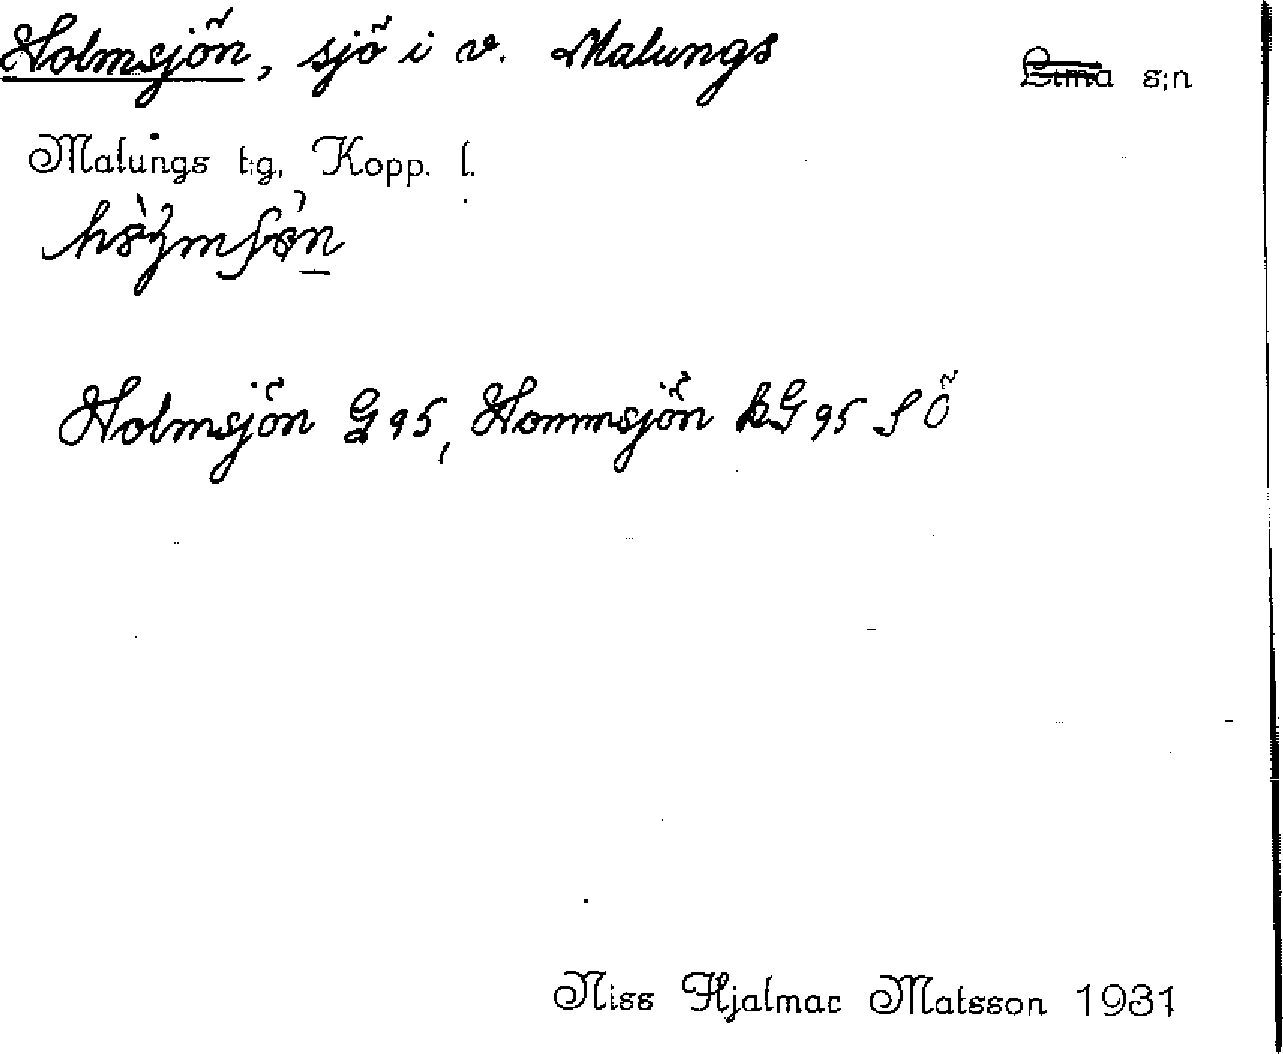 Holmsjön, sjö i v. Malungs Lima s;n
Malungs t;g, Kopp. l.
Holmsjön G 95, Hommsjön kG 95 S Ö
Niss Hjalmar Matsson 1931